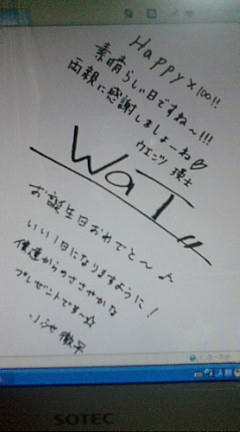 Happy×100!!
素晴らしい日ですね〜!!!
両親に感謝しましょーね♡
ウエンツ瑛士
WaT
お誕生日おめでと〜♪
いい1日になりますように!
僕達からのささやかな
プレゼントです〜☆
小池徹平
SOTEC